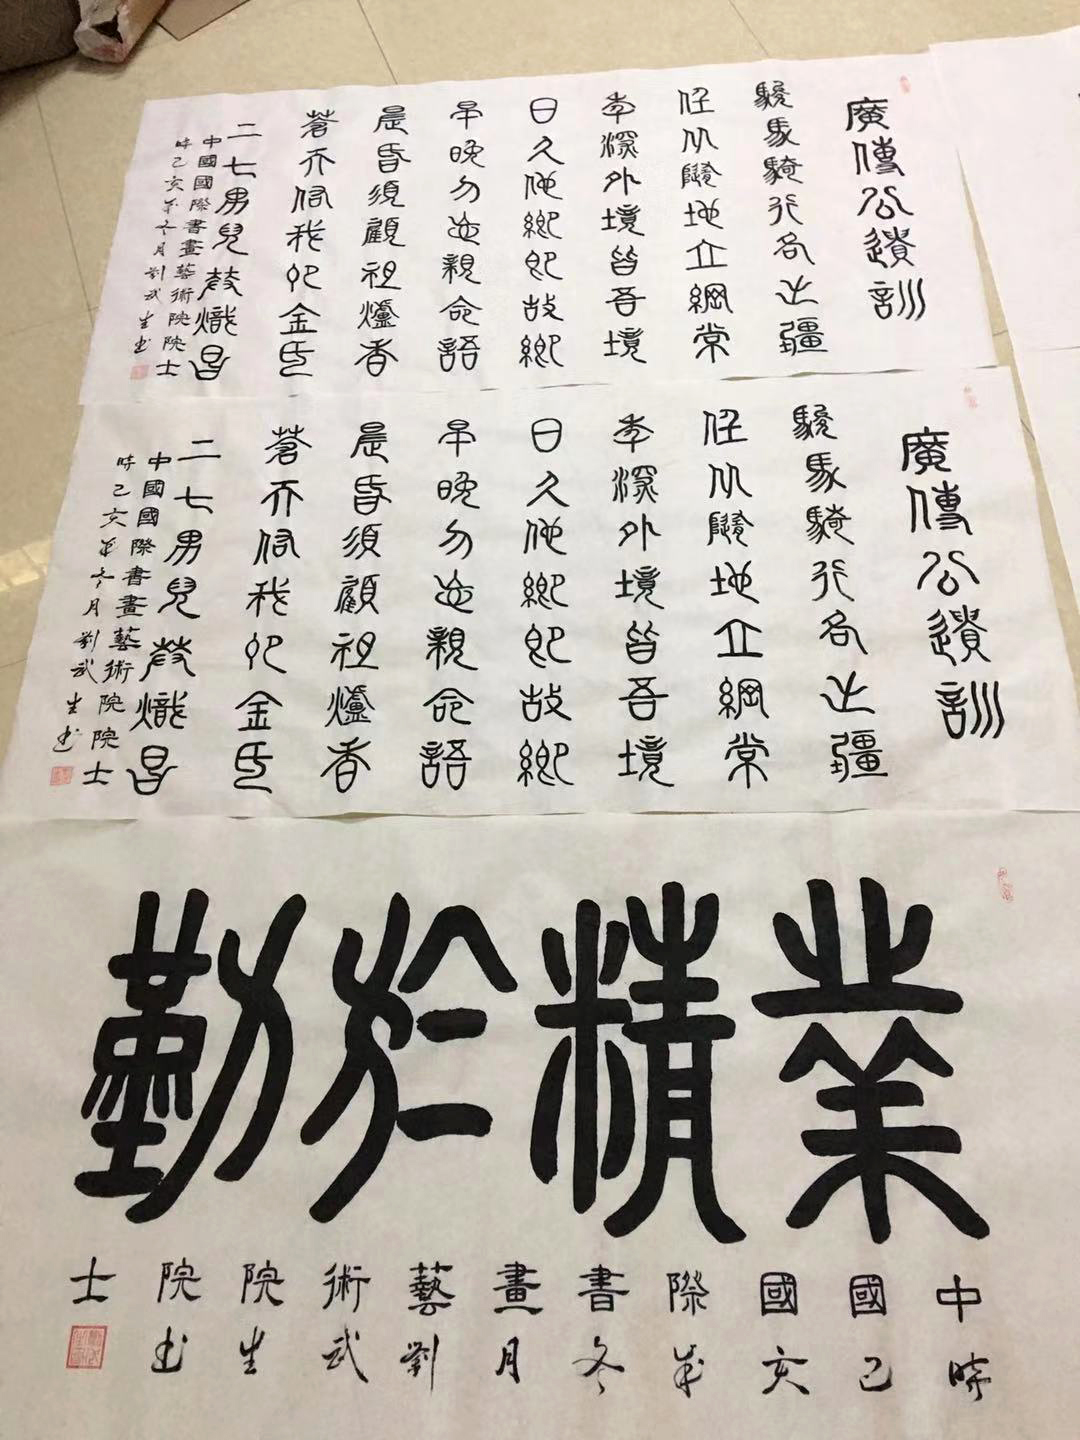 廣傳公遺訓
駿馬騎行各出疆
任从隨地立綱常
年深外境皆吾境
日久他鄉即故鄉
早晚勿忘親命語
晨昏須顧祖爐香
蒼天佑我卯金氏
二七男兒發熾昌
中國國際書畫藝術院院士
時己亥年冬月劉武生书
廣傳公遺訓
駿馬騎行各出疆
任从隨地立綱常
年深外境皆吾境
日久他鄉即故鄉
早晚勿忘親命語
晨昏須顧祖爐香
蒼天佑我卯金氏
二七男兒發熾昌
中國國際書畫藝術院院士
時己亥年冬月劉武生书
業精於勤
中國國際書畫藝術院院士
時己亥年冬月劉武生书